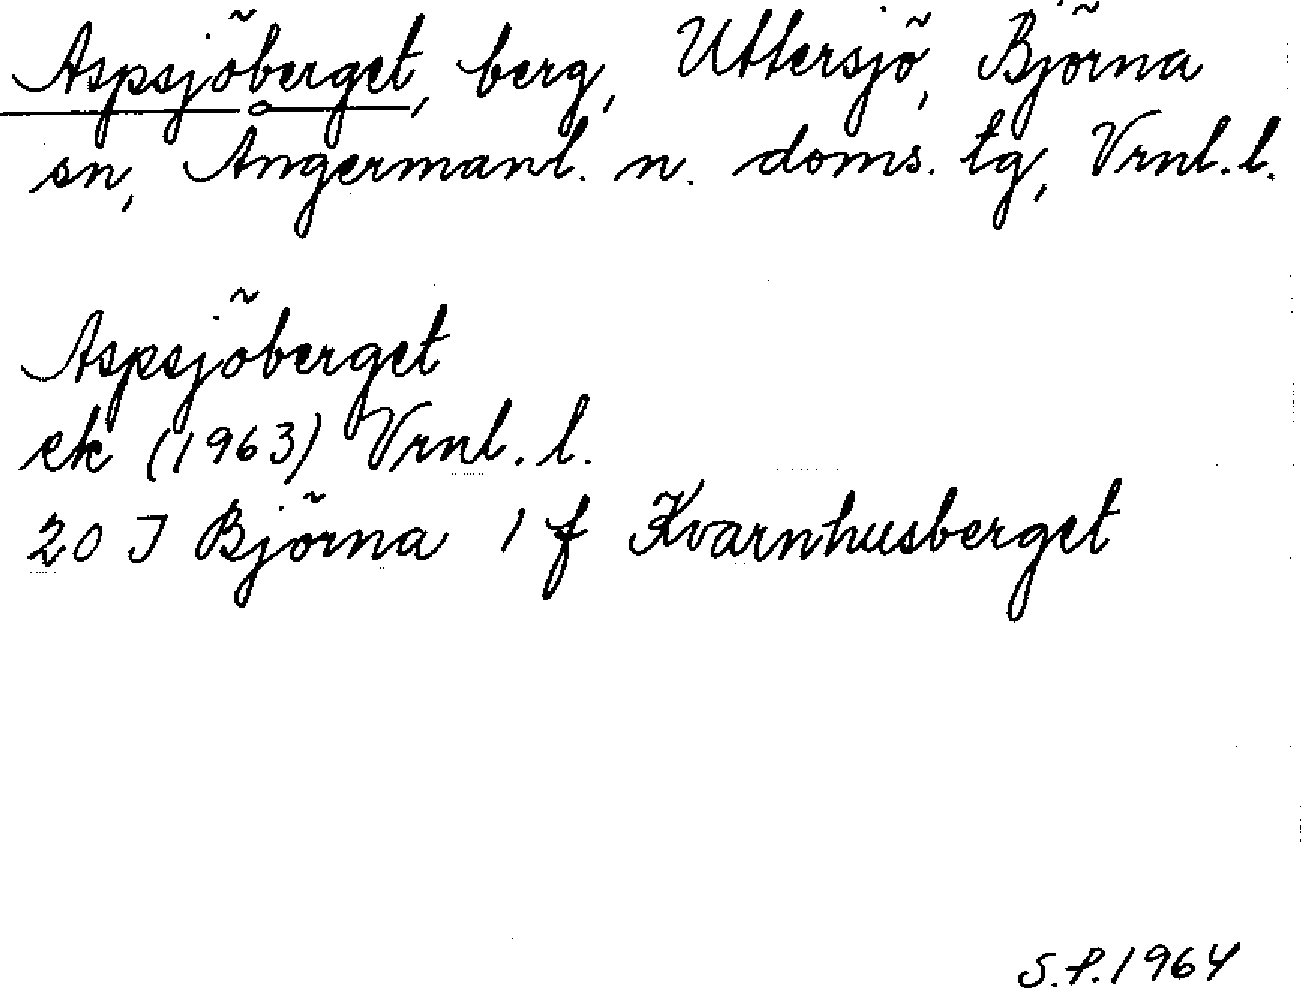 Aspsjöberget, berg, Uttersjö, Björna
sn, Ångermanl. n. doms. tg, Vrnl. l.
Aspsjöberget
ek (1963) Vrnl. l.
20 J Björna 1 f Kvarnhusberget
S.P. 1964